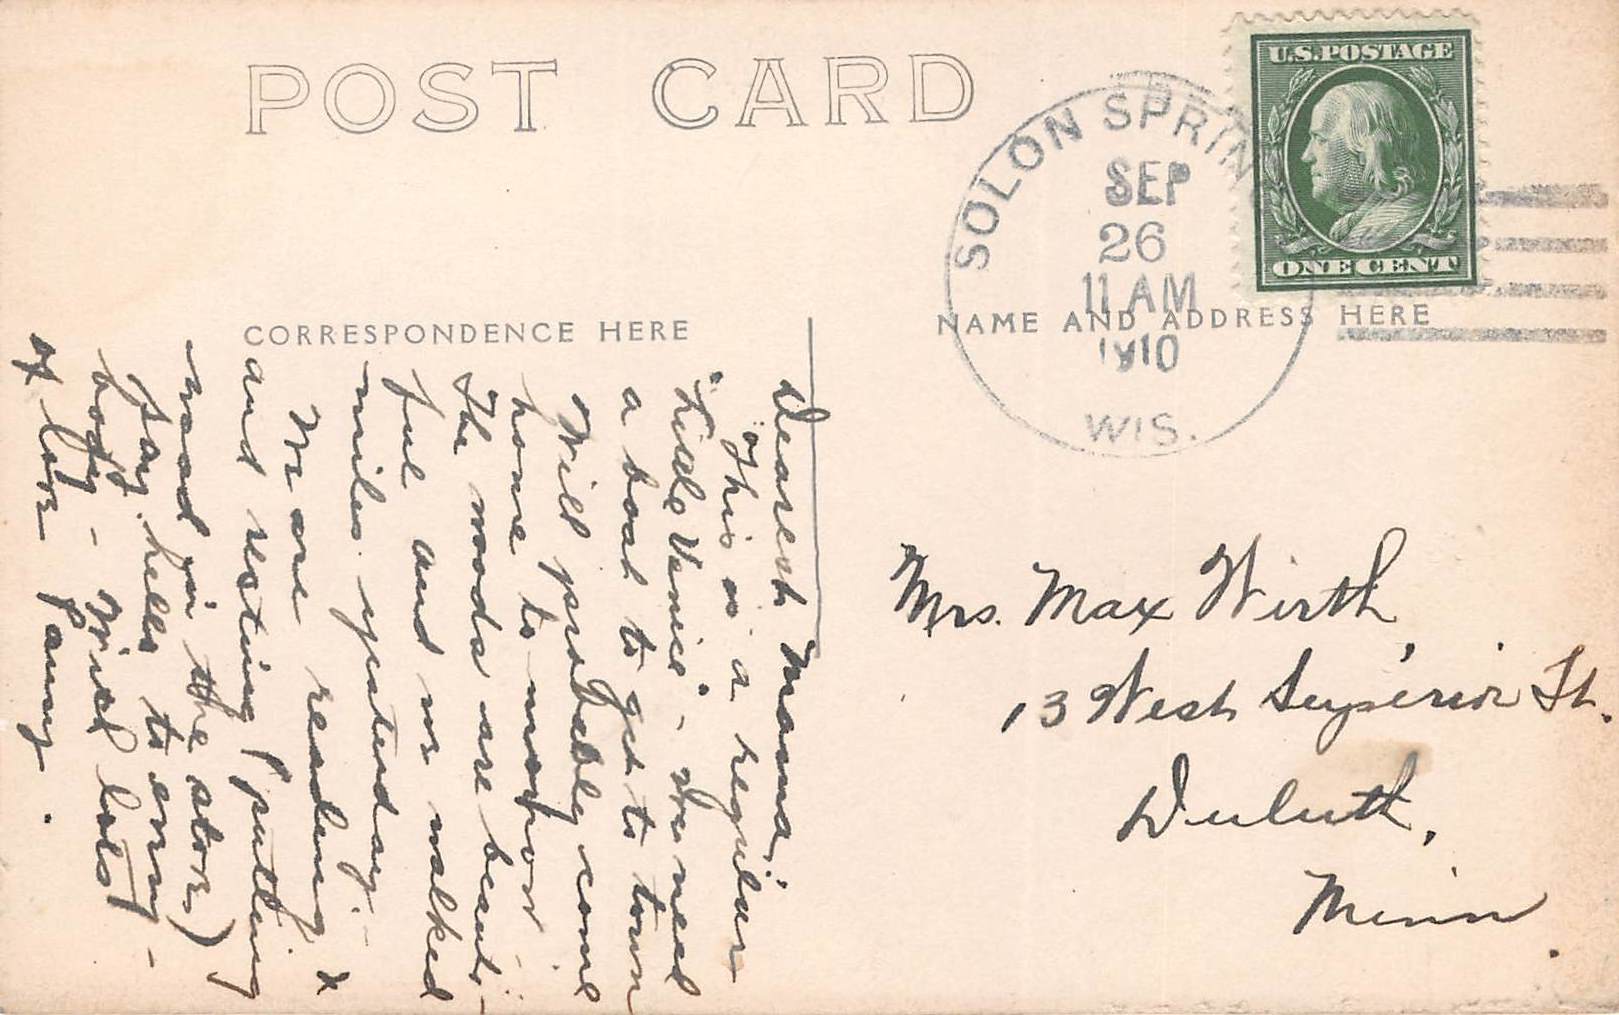 POST CARD
SOLON SPRIN
SEP
26
11 AM
1910
WIS.
U.S. POSTAGE
ONE CENT
CORRESPONDENCE HERE
NAME AND ADDRESS HERE
Dearest Mama,
"This is a regular
"Little Venice" - We need
a boat to get to town
Will probably come
home to-morrow -
The woods are beauti-
ful and we walked
miles yesterday. -
We are reading &
and resting (putting
wood in the stove)
Fay hello to every-
body - With lots
of love Fanny.
Mrs. Max Wirth,
13 West Superior St.
Duluth,
Minn.